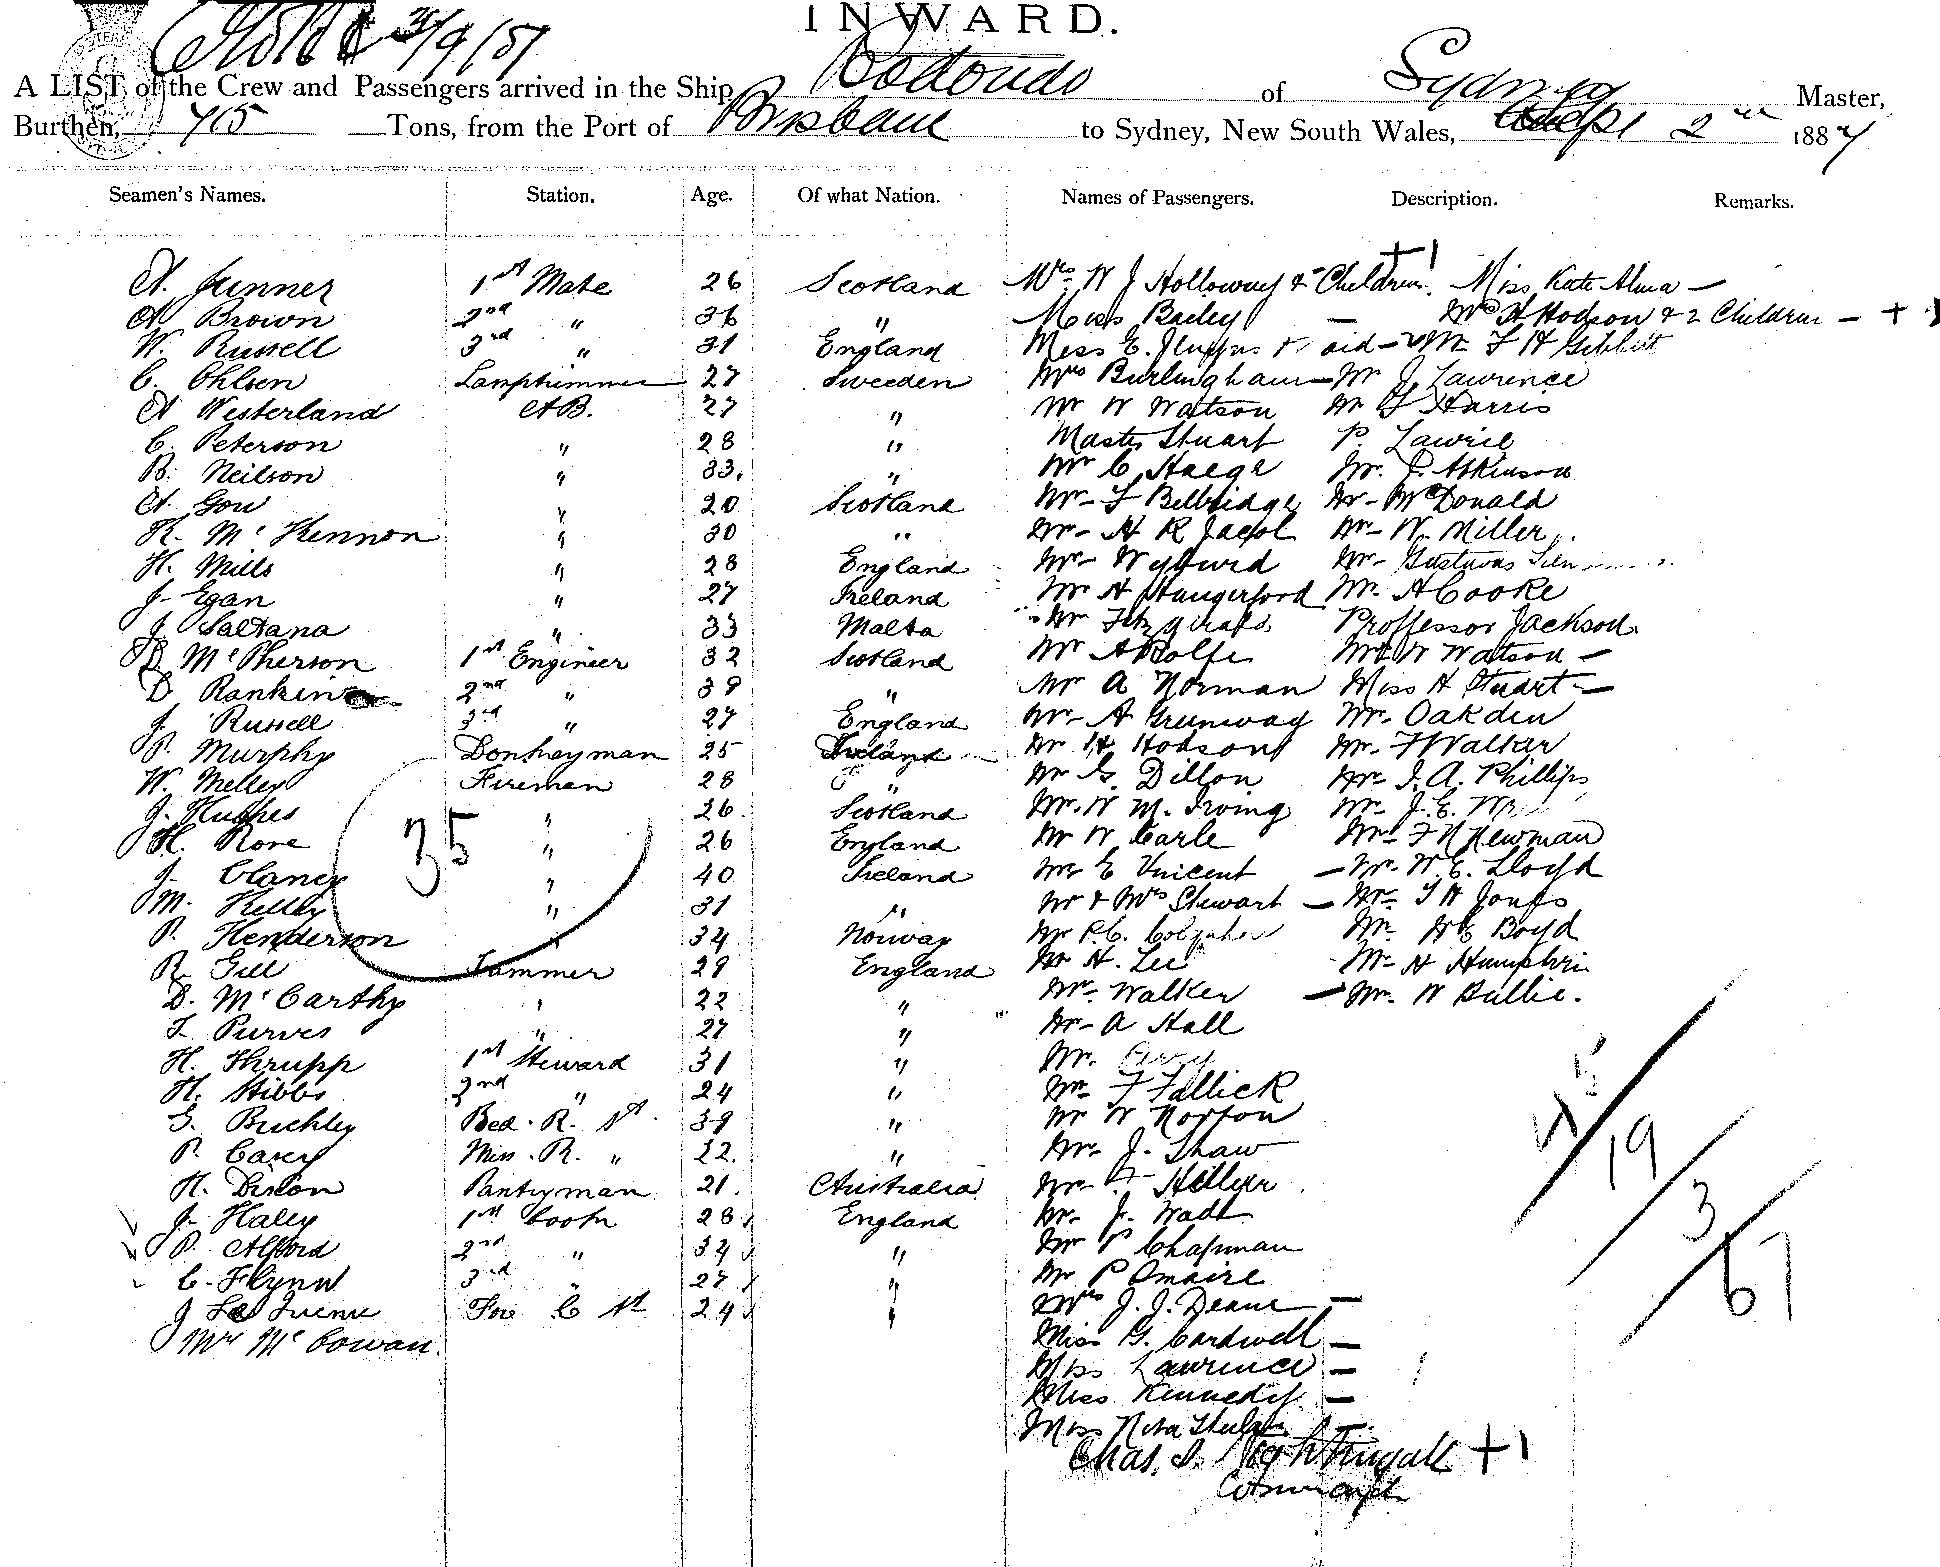 INWARD.
A LIST of the Crew and Passengers arrived in the Ship Bodondo of Sydney Master,
Burthen, 415 Tons, from the Port of Brisbane to Sydney, New South Wales, Sept 2nd 1887
Seamen's Names. Station. Age. Of what Nation. Names of Passengers. Description. Remarks.
A. Junner 1st Mate 26 Scotland Mrs W J Holloway & Children. Miss Kate Alma — +1
A Brown 2nd " 36 " Miss Bailey — Mrs H Hodson & 2 Children — +1
W. Russell 3rd " 31 England Miss E. & Mr F H Gibbitt
C. Ohlsen Lamptrimmer 27 Sweeden Mrs Burlingham — Mr J. Lawrence
A Westerland AB. 27 " Mr W Watson Mr Harris
C. Peterson " 28 " Master Stuart P. Lawrie
B. Neilson " 33. " Mr C Haege Mr. Atkinson
A. Gow " 20 Scotland Mr - F Belbridge Mr - McDonald
R. McKennon " 30 " Mr - H R Jacob Mr - W. Miller
H. Mills " 28 England Mr - Mr - Gustavas
J. Egan " 27 Ireland Mr H Hungerford Mr. A Cooke
J. Saltana " 33 Malta Mr Fitzgerald Proffessor Jackson
D McPherson 1st Engineer 32 Scotland Mr A Rolfe Mr W Watson —
D Rankin 2nd " 39 " Mr A Norman Miss H Stuart —
J. Russell 3rd " 27 England Mr - A Greenway Mr. Oakden
P. Murphy Donkeyman 25 Ireland Mr H Hodson Mr. F Walkar
W. Melley Firemen 28 " Mr G. Dillon Mr J. A. Phillips
J. Hughes " 26 Scotland Mr. W M. Irving Mr. J. E.
H. Rore " 26 England Mr W Carle Mr F N Newman
J. Clancy " 40 Ireland Mr E Vincent — Mr. W. E. Lloyd
M. Kelly " 31 " Mr & Mrs Stewart — Mr. T H Jones
P. Henderson " 34 Norway Mr P. C. Mr. Boyd
35
R. Gill Tammer 29 England Mr H. Lee Mr H Humphri
D. McCarthy " 22 " Mr. Walker — Mr. W Bullie.
T. Purves " 27 " Mr - A Hall
H. Thrupp 1st Steward 31 " Mr.
H. Hibbs 2nd " 24 " Mr F Fallick
G. Buckley Bed. R. St. 39 " Mr W Norton
P. Carey Mess. R. " 22. " Mr. J. Shaw
H. Dixon Pantryman 21. Australia Mr - Hellyer
J. Haley 1st Cook 28 England Mr. J. Wadt
P. Alford 2nd " 34 " Mr P Chapman
C. Flynn 3rd " 27 " Mr P Omaire
J Fore C St 24 " Mrs J. J. Deane —
Mrs McCowan. Miss G. Cardwell —
Miss Lawrence —
Miss Kennedy —
Miss Nita
Chas. S. Nightingale +1
45
19
3
67